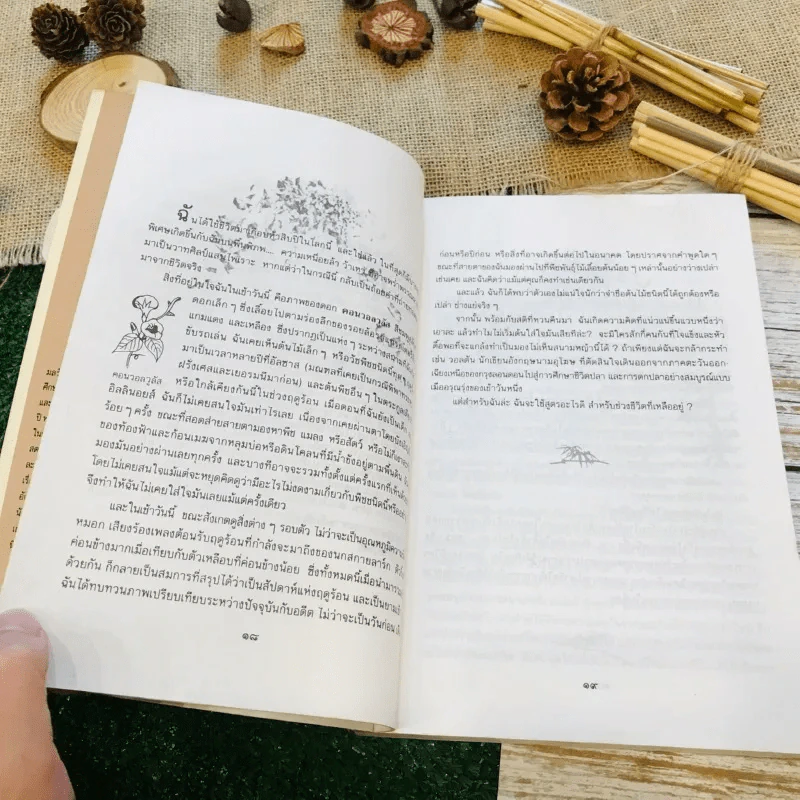 ฉันได้ใช้ชีวิตมาเกือบห้าสิบปีในโลกนี้ และใช่แล้ว ในที่สุดก็มี
พิเศษเกิดขึ้นกับฉันบนพื้นพิภพ.... ความเหนื อยล้า
มาเป็นวาทศิลป์แสนไพเราะ หากแต่ว่าในกรณีนี้ กลับเป็นถ้อยคำที่
มาจากชีวิตจริง
สิ่งที่อยู่ในใจฉันในเช้าวันนี้ คือภาพของดอก คอนวอลวูลัส
ดอกเล็ก ๆ ซึ่งเลื้อยไปตามร่องลึกของรอยล้อ
แกมแดง และเหลือง ซึ่งปรากฏเป็นแห่ง ๆ ระหว่าง
ขับรถเล่น ฉันเคยเห็นต้นไม้เล็ก ๆ หรือวัชพืชชนิดนี้
มาเป็นเวลาหลายปีที่อัลซาส (มณฑลที่เคยเป็นกรณีพิพาท
ฝรั่งเศสและเยอรมนีมาก่อน) และต้นพืชอื่น ๆ ในตระกูล
คอนวอลวูลัส หรือใกล้เคียงกันนี้ในช่วงฤดูร้อน เมื่อตอนที่ฉันยังเป็นเด็ก
อิลลินอยส์ ฉันก็ไม่เคยสนใจมันเท่าไรเลย เนื่องจากเคยผ่านตาโดยบังเอิญ
ร้อย ๆ ครั้ง ขณะที่สอดส่ายสายตามองหาพืช แมลง หรือสัตว์ หรือไม่ก็
ของท้องฟ้าและก้อนเมฆจากหลุมบ่อหรือดินโคลนที่มีน้ำขังอยู่ตามพื้นดิน
มองมันอย่างผ่านเลยทุกครั้ง และบางทีอาจจะรวมทั้งตั้งแต่ครั้งแรกที่เห็น
โดยไม่เคยสนใจแม้แต่จะหยุดคิดดูว่ามีอะไรไม่งดงามเกี่ยวกับพืชชนิดนี้หรือ
จึงทำให้ฉันไม่เคยใส่ใจมันเลยแม้แต่ครั้งเดียว
และในเช้าวันนี้ ขณะสังเกตดูสิ่งต่าง ๆ รอบตัว ไม่ว่าจะเป็นอุณหภูมิความ
หมอก เสียงร้องเพลงต้อนรับฤดูร้อนที่กำลังจะมาถึงของนกสกายลาร์ก
ค่อนข้างมากเมื่อเทียบกับตัวเหลือบที่ค่อนข้างน้อย ซึ่งทั้งหมดนี้เมื่อนำมารวม
ด้วยกัน ก็กลายเป็นสมการที่สรุปได้ว่าเป็นสัปดาห์แห่งฤดูร้อน และเป็นยามเช้า
ฉันได้ทบทวนภาพเปรียบเทียบระหว่างปัจจุบันกับอดีต ไม่ว่าจะเป็นวันก่อน
๑๘
ก่อนหรือปีก่อน หรือสิ่งที่อาจเกิดขึ้นต่อไปในอนาคต โดยปราศจากคำพูดใด ๆ
ขณะที่สายตาของฉันมองผ่านไปที่พืชพันธุ์ไม้เลื้อยต้นน้อย ๆ เหล่านั้นอย่างว่างเปล่า
เช่นเคย และฉันคิดว่าแม้แต่คุณก็คงทำเช่นเดียวกัน
และแล้ว ฉันก็ได้พบว่าตัวเองไม่แน่ใจนักว่าจำชื่อต้นไม้ชนิดนี้ได้ถูกต้องหรือ
เปล่า ช่างแย่จริง ๆ
จากนั้น พร้อมกับสติที่หวนคืนมา ฉันเกิดความคิดที่แน่วแน่ขึ้นแวบหนึ่งว่า
เอาละ แล้วทำไมไม่เริ่มต้นใส่ใจมันเสียทีล่ะ? จะมีใครสักกี่คนกันที่ใจแข็งและหัว
ดื้อพอที่จะแกล้งทำเป็นมองไม่เห็นสนามหญ้านี้ได้ ? ถ้าเพียงแต่ฉันจะกล้ากระทำ
เช่น วอลตัน นักเขียนอังกฤษนามอุโฆษ ที่ตัดสินใจเดินออกจากภาคตะวันออก-
เฉียงเหนือของกรุงลอนดอนไปสู่การศึกษาชีวิตปลา และการตกปลาอย่างสมบูรณ์แบบ
เมื่ออรุณรุ่งของเช้าวันหนึ่ง
แต่สำหรับฉันล่ะ ฉันจะใช้สูตรอะไรดี สำหรับช่วงชีวิตที่เหลืออยู่ ?
๑๙